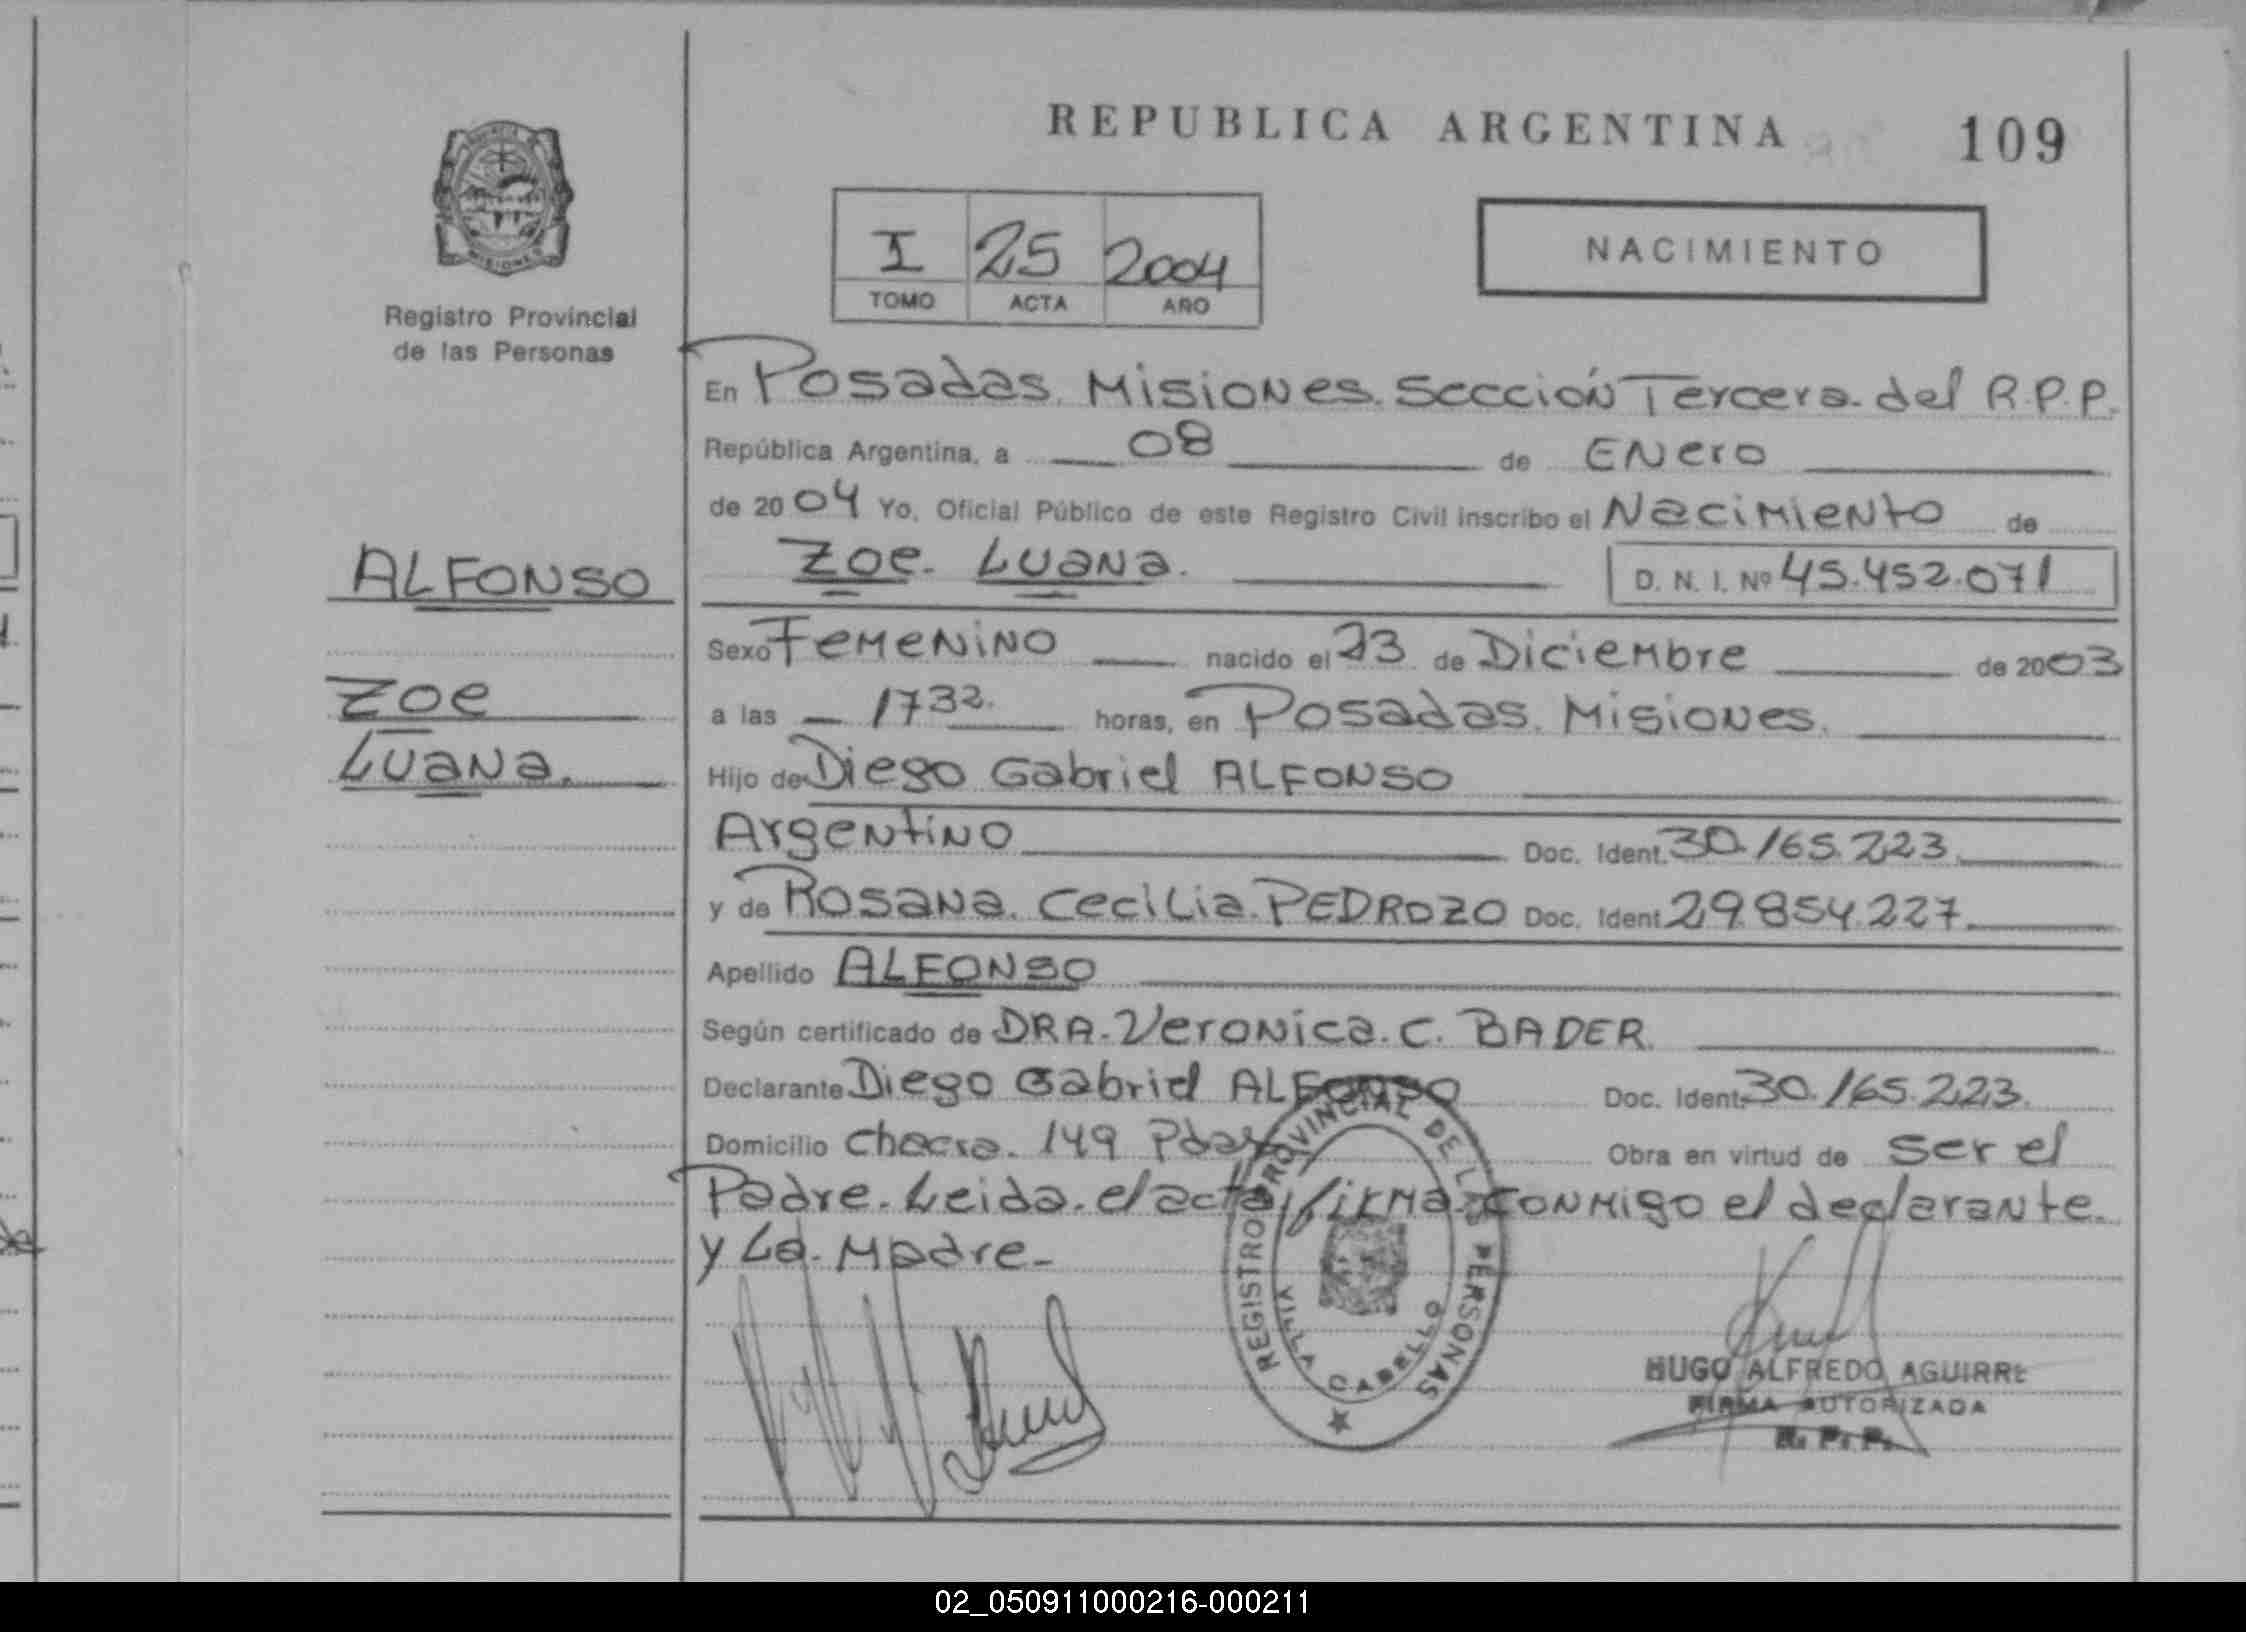 REPUBLICA ARGENTINA 109
I 25 2004
TOMO ACTA AÑO
NACIMIENTO
PROVINCIA
MISIONES
Registro Provincial
de las Personas
ALFONSO
Zoe
Luana.
En Posadas. Misiones. Sección Tercera. del R.P.P.
República Argentina, a 08 de Enero
de 2004 Yo, Oficial Público de este Registro Civil inscribo el Nacimiento de
Zoe. Luana. D. N. I. Nº 45.452.071
Sexo Femenino nacido el 23 de Diciembre de 2003
a las 1732. horas, en Posadas. Misiones.
Hijo de Diego Gabriel ALFONSO
Argentino Doc. Ident. 30.165.223.
y de Rosana. Cecilia. PEDROZO Doc. Ident 29.854.227.
Apellido ALFONSO
Según certificado de DRA. Veronica. C. BADER.
Declarante Diego Gabriel ALFONSO Doc. Ident. 30.165.223.
Domicilio Chacra. 149 Pdas Obra en virtud de ser el
Padre. Leida. el acta, firma. conmigo el declarante.
y La. Madre.-
REGISTRO PROVINCIAL DE LAS PERSONAS
VILLA CABELLO
HUGO ALFREDO AGUIRRE
FIRMA AUTORIZADA
R. P. P.
02_050911000216-000211